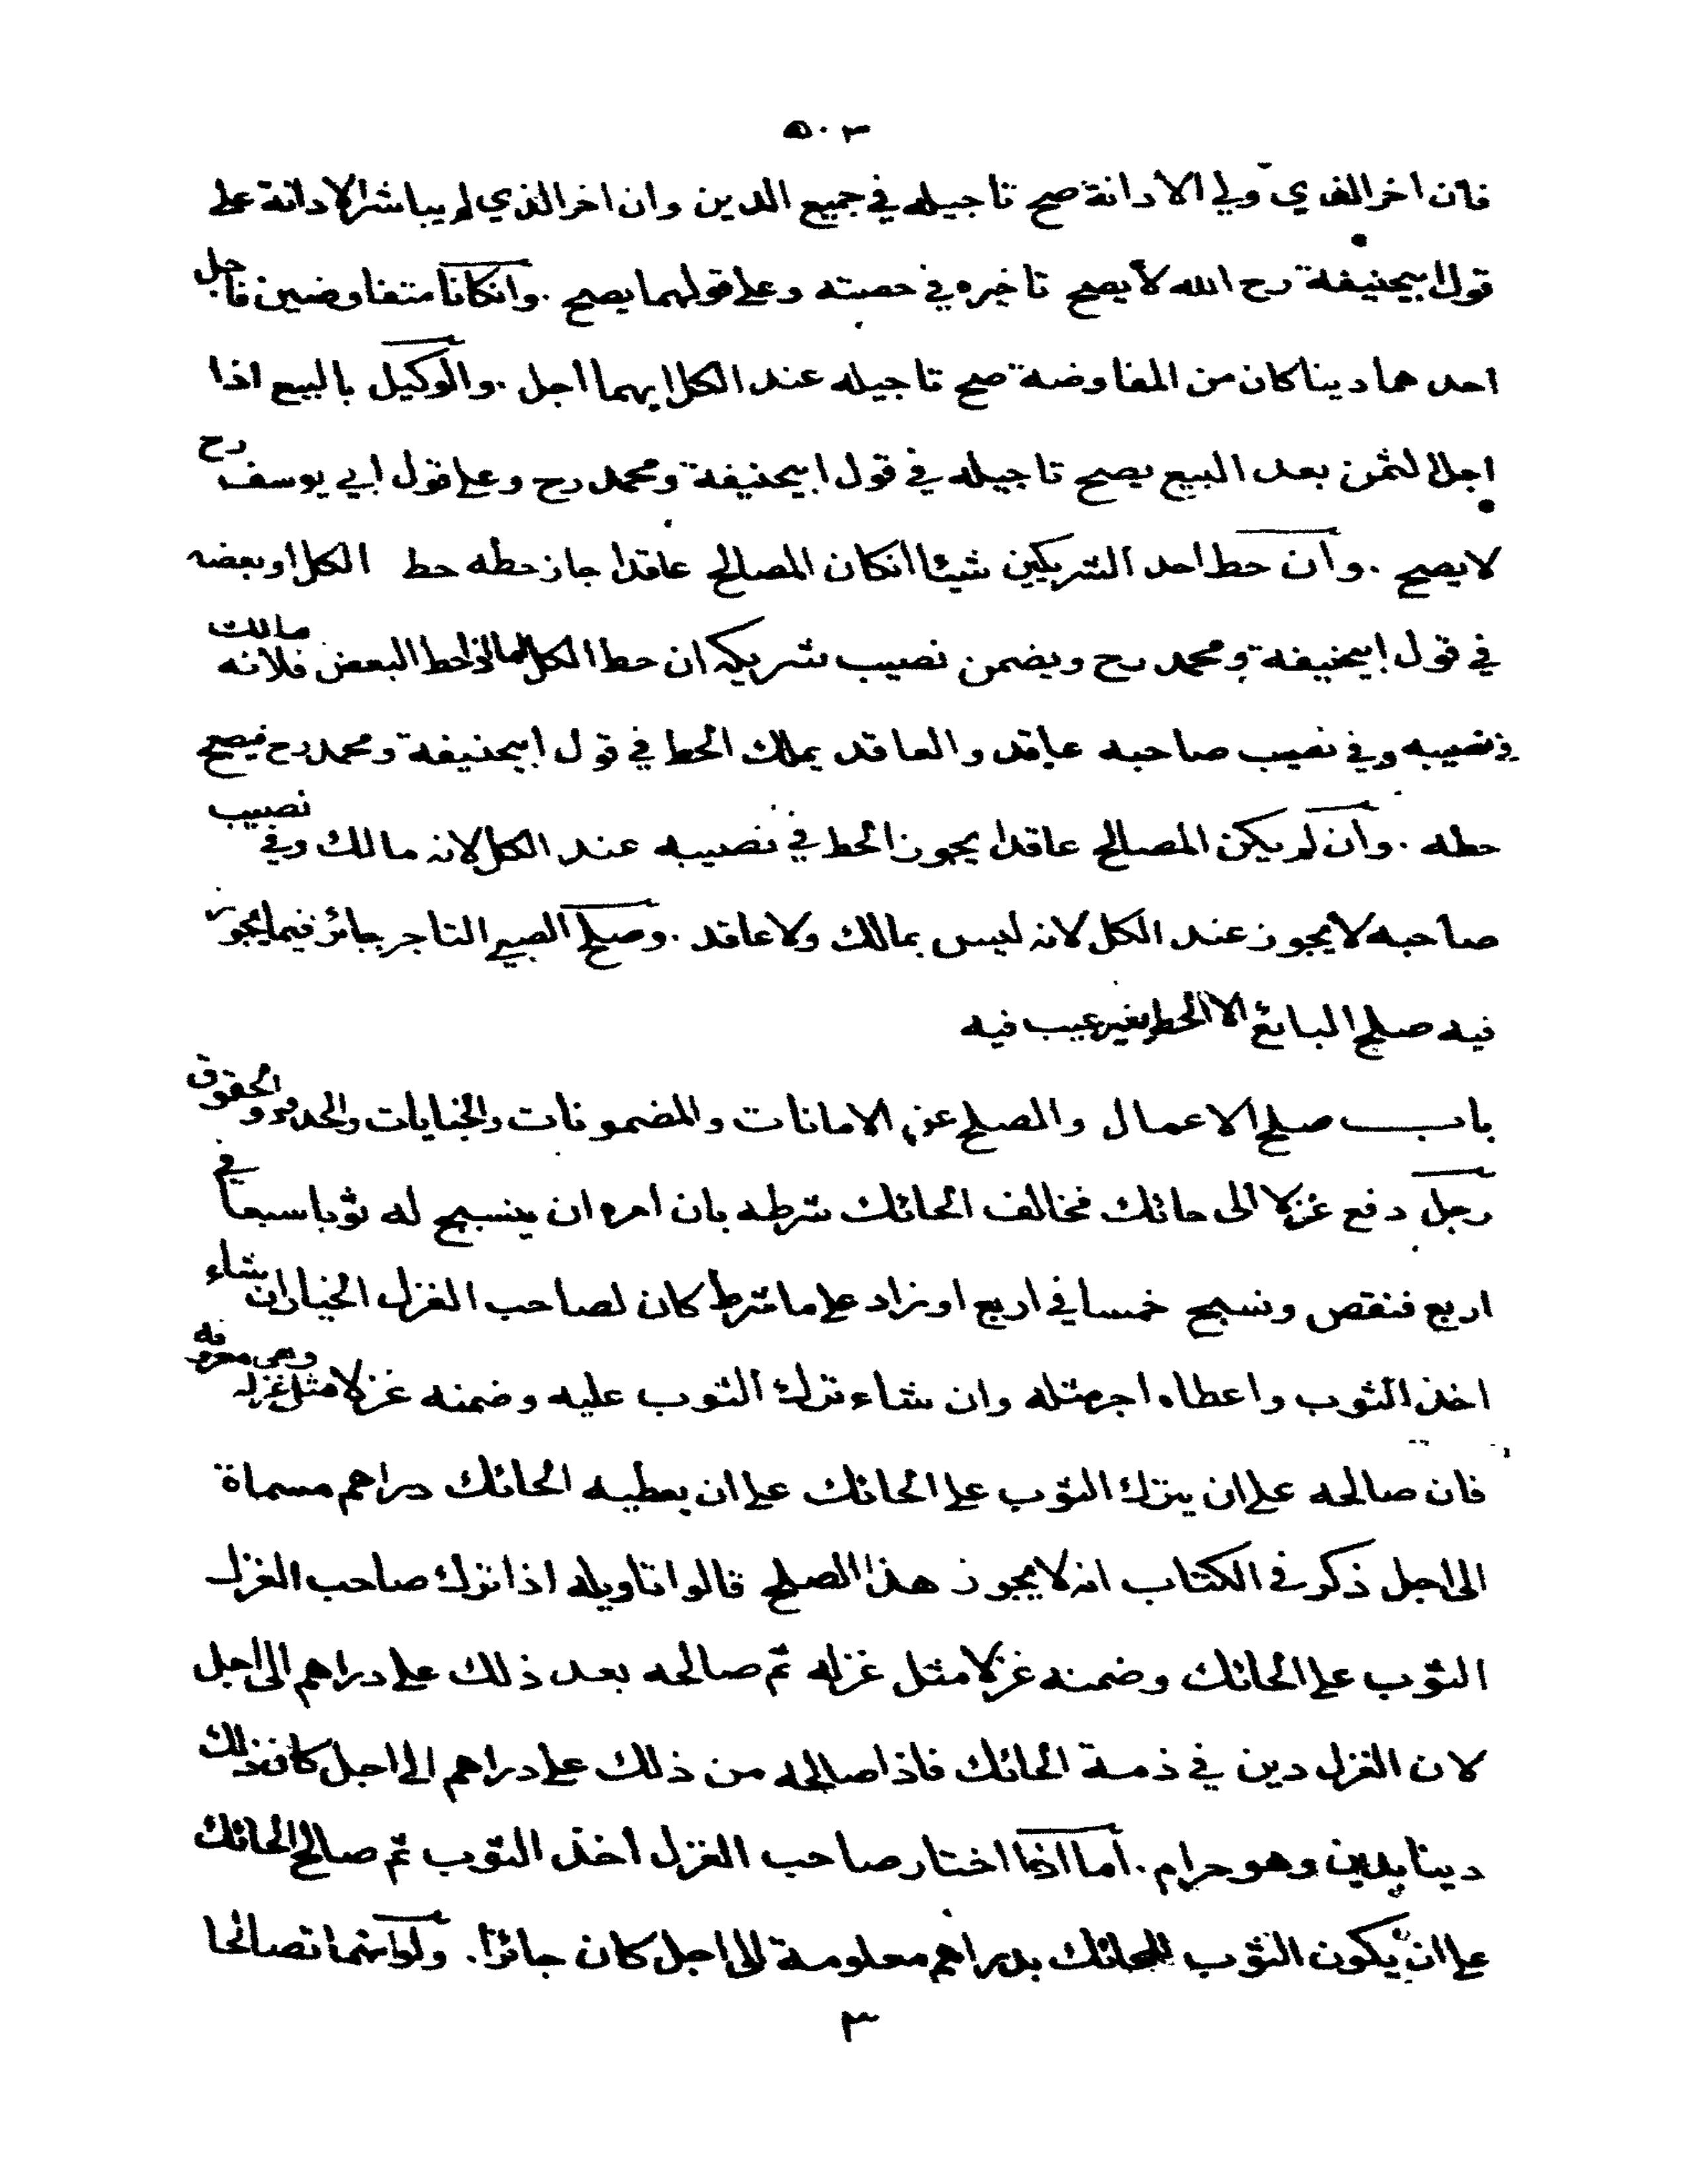 ٥٠٣
فان اخر الذي ولي الادانة صح تاجيله في جميع الدين وان اخر الذي لم يباشر الادانة على
قول ابيحنيفة رح الله لا يصح تاخيره في حصته وعلى قولهما يصح . وانكانا متفاوضين فاجل
احدهما دينا كان من المفاوضة صح تاجيله عند الكل ايهما اجل . والوكيل بالبيع اذا
اجل الثمن بعد البيع يصح تاجيله في قول ابيحنيفة ومحمد رح وعلى قول ابي يوسف رح
لا يصح . وان حط احد الشريكين شيئا انكان المصالح عاقدا جاز حطه حط الكل او بعضه
في قول ابيحنيفة ومحمد رح ويضمن نصيب شريكه ان حط الكل اما اذا حط البعض فلانه مالك
في نصيبه وفي نصيب صاحبه عاقد والعاقد يملك الحط في قول ابيحنيفة ومحمد رح فيصح
حطه . وان لم يكن المصالح عاقدا يجوز الحط في نصيبه عند الكل لانه مالك وفي نصيب
صاحبه لا يجوز عند الكل لانه ليس بمالك ولا عاقد . وصلح الصبي التاجر جائز فيما يجوز
فيه صلح البائع الا الحط بغير عيب فيه
باب صلح الاعمال والصلح عن الامانات والمضمونات والجنايات والحدود والحقوق
رجل دفع غزلا الى حائك فخالف الحائك شرطه بان امره ان ينسج له ثوبا سبعا في
اربع فنقص ونسج خمسا في اربع او زاد على ما شرط كان لصاحب الغزل الخيار ان شاء
اخذ الثوب واعطاه اجر مثله وان شاء ترك الثوب عليه وضمنه غزلا مثل غزله وهي معروفه
فان صالحه على ان يترك الثوب على الحائك على ان يعطيه الحائك دراهم مسماة
الى اجل ذكر في الكتاب انه لا يجوز هذا الصلح قالوا تاويله اذا ترك صاحب الغزل
الثوب على الحائك وضمنه غزلا مثل غزله ثم صالحه بعد ذلك على دراهم الى اجل
لان الغزل دين في ذمة الحائك فاذا صالحه من ذلك على دراهم الى اجل كان ذلك
دينا بدين وهو حرام . اما اذا اختار صاحب الغزل اخذ الثوب ثم صالح الحائك
على ان يكون الثوب للحائك بدراهم معلومة الى اجل كان جائزا . ولو انهما تصالحا
٣